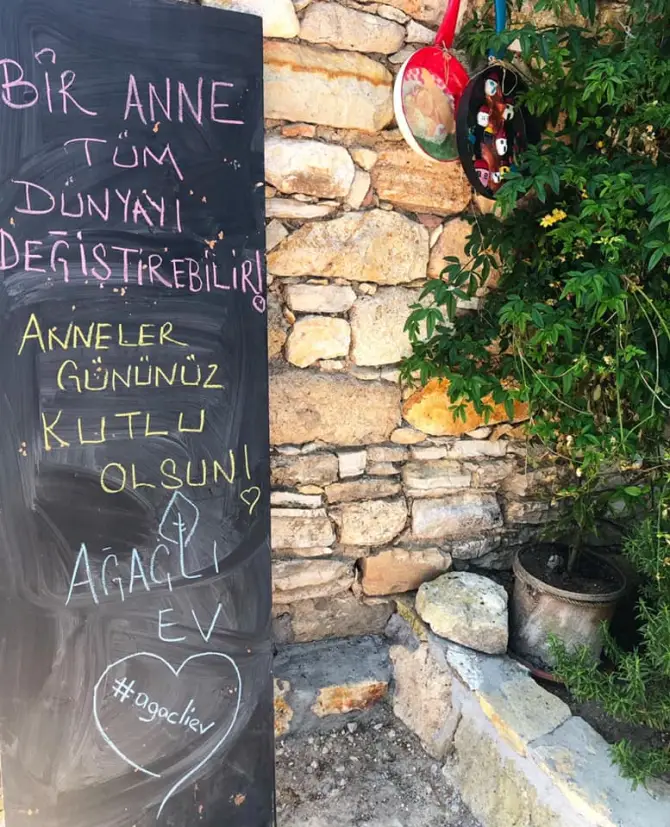 BİR ANNE
TÜM
DÜNYAYI
DEĞİŞTİREBİLİR!
ANNELER
GÜNÜNÜZ
KUTLU
OLSUN!
AĞAÇLI
EV
#agacliev